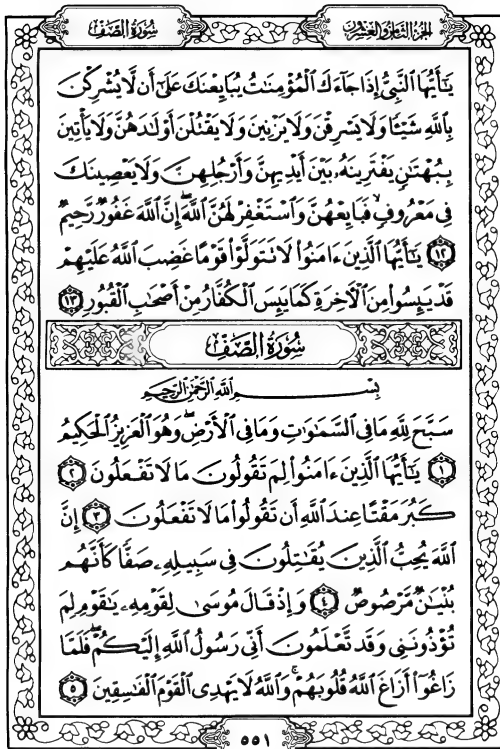 سُورَةُ الصَّفِّ
الجُزْءُ الثَّامِنُ وَالعِشْرُونَ
يَٰٓأَيُّهَا ٱلنَّبِىُّ إِذَا جَآءَكَ ٱلْمُؤْمِنَٰتُ يُبَايِعْنَكَ عَلَىٰٓ أَن لَّا يُشْرِكْنَ
بِٱللَّهِ شَيْـًٔا وَلَا يَسْرِقْنَ وَلَا يَزْنِينَ وَلَا يَقْتُلْنَ أَوْلَٰدَهُنَّ وَلَا يَأْتِينَ
بِبُهْتَٰنٍ يَفْتَرِينَهُۥ بَيْنَ أَيْدِيهِنَّ وَأَرْجُلِهِنَّ وَلَا يَعْصِينَكَ
فِى مَعْرُوفٍ ۙ فَبَايِعْهُنَّ وَٱسْتَغْفِرْ لَهُنَّ ٱللَّهَ ۖ إِنَّ ٱللَّهَ غَفُورٌ رَّحِيمٌ
١٢ يَٰٓأَيُّهَا ٱلَّذِينَ ءَامَنُوا۟ لَا تَتَوَلَّوْا۟ قَوْمًا غَضِبَ ٱللَّهُ عَلَيْهِمْ
قَدْ يَئِسُوا۟ مِنَ ٱلْـَٔاخِرَةِ كَمَا يَئِسَ ٱلْكُفَّارُ مِنْ أَصْحَٰبِ ٱلْقُبُورِ ١٣
سُورَةُ الصَّفِّ
بِسْمِ ٱللَّهِ ٱلرَّحْمَٰنِ ٱلرَّحِيمِ
سَبَّحَ لِلَّهِ مَا فِى ٱلسَّمَٰوَٰتِ وَمَا فِى ٱلْأَرْضِ ۖ وَهُوَ ٱلْعَزِيزُ ٱلْحَكِيمُ
١ يَٰٓأَيُّهَا ٱلَّذِينَ ءَامَنُوا۟ لِمَ تَقُولُونَ مَا لَا تَفْعَلُونَ ٢
كَبُرَ مَقْتًا عِندَ ٱللَّهِ أَن تَقُولُوا۟ مَا لَا تَفْعَلُونَ ٣ إِنَّ
ٱللَّهَ يُحِبُّ ٱلَّذِينَ يُقَٰتِلُونَ فِى سَبِيلِهِۦ صَفًّا كَأَنَّهُم
بُنْيَٰنٌ مَّرْصُوصٌ ٤ وَإِذْ قَالَ مُوسَىٰ لِقَوْمِهِۦ يَٰقَوْمِ لِمَ
تُؤْذُونَنِى وَقَد تَّعْلَمُونَ أَنِّى رَسُولُ ٱللَّهِ إِلَيْكُمْ ۖ فَلَمَّا
زَاغُوٓا۟ أَزَاغَ ٱللَّهُ قُلُوبَهُمْ ۚ وَٱللَّهُ لَا يَهْدِى ٱلْقَوْمَ ٱلْفَٰسِقِينَ ٥
٥٥١